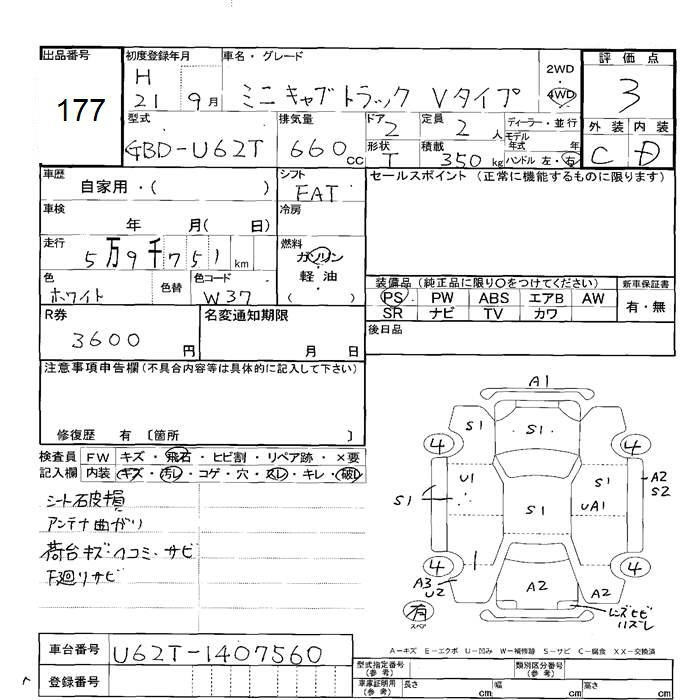 出品番号
177
初度登録年月
H 21 9月
車名・グレード
ミニキャブトラック Vタイプ
2WD
4WD
評価点
3
外装 内装
C D
型式
GBD-U62T
排気量
660cc
ドア
2
定員
2人
形状
T
積載
350kg
ディーラー・並行
モデル年式 年
ハンドル 左・右
車歴
自家用・( )
シフト
FAT
車検
年 月( 日)
冷房
走行
5万9千751km
燃料
ガソリン
・
軽油
( )
色
ホワイト
色替
色コード
W37
セールスポイント (正常に機能するものに限ります)
装備品(純正品に限り○をつけてください)
新車保証書
PS PW ABS エアB AW
SR ナビ TV カワ
有・無
後日品
R券
3600円
名変通知期限
月 日
注意事項申告欄(不具合内容等は具体的に記入して下さい)
修復歴 有 〔箇所 〕
検査員 FW キズ・飛石・ヒビ割・リペア跡・×要
記入欄 内装 キズ・汚レ・コゲ・穴・スレ・キレ・破レ
シート破損
アンテナ曲がり
荷台キズ・ヘコミ・サビ
下廻りサビ
A1
S1
S1
S1
4
4
U1
S1
A2
S2
S1
S1
UA1
4
4
A3
U2
A2
A2
有
スペア
A-キズ E-エクボ U-凹み W-補修跡 S-サビ C-腐食 XX-交換済
車台番号
U62T-1407560
登録番号
型式指定番号(参考)
類別区分番号(参考)
車庫証明用(参考)
長さ cm 幅 cm 高さ cm